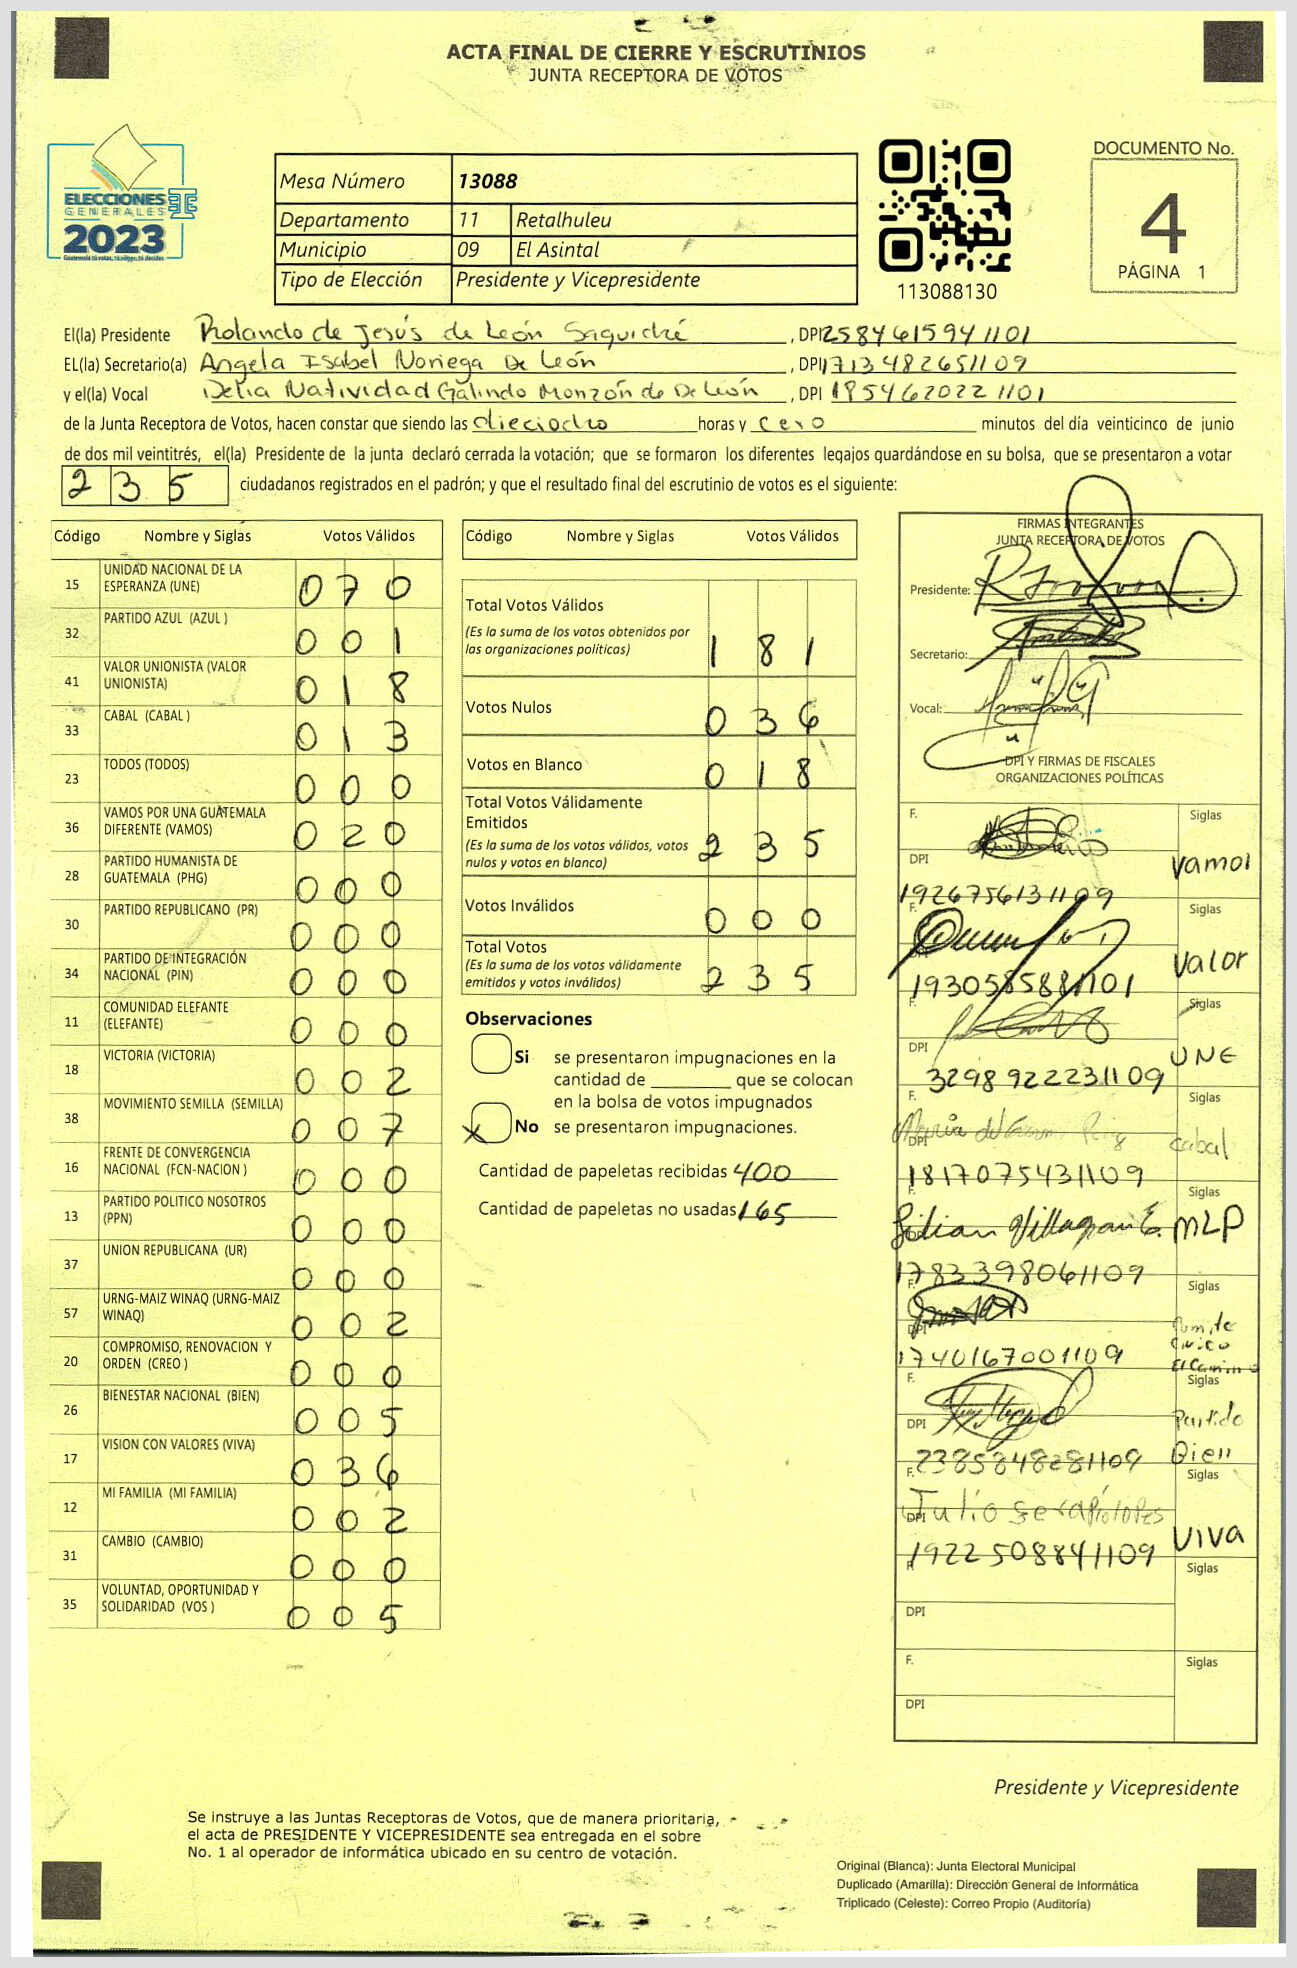 ACTA FINAL DE CIERRE Y ESCRUTINIOS
JUNTA RECEPTORA DE VOTOS
ELECCIONES
GENERALES
2023
Guatemala tú votas, tú eliges, tú decides
Mesa Número 13088
Departamento 11 Retalhuleu
Municipio 09 El Asintal
Tipo de Elección Presidente y Vicepresidente
113088130
DOCUMENTO No.
4
PÁGINA 1
El(la) Presidente Rolando de Jesús de León Saquiché, DPI 2584615941101
EL(la) Secretario(a) Angela Isabel Noriega De León, DPI 1713482651109
y el(la) Vocal Delia Natividad Galindo Monzón de De León, DPI 1854620221101
de la Junta Receptora de Votos, hacen constar que siendo las dieciocho horas y cero minutos del día veinticinco de junio
de dos mil veintitrés, el(la) Presidente de la junta declaró cerrada la votación; que se formaron los diferentes legajos quardándose en su bolsa, que se presentaron a votar
235 ciudadanos registrados en el padrón; y que el resultado final del escrutinio de votos es el siguiente:
Código Nombre y Siglas Votos Válidos
15 UNIDAD NACIONAL DE LA ESPERANZA (UNE) 070
32 PARTIDO AZUL (AZUL ) 001
41 VALOR UNIONISTA (VALOR UNIONISTA) 018
33 CABAL (CABAL ) 013
23 TODOS (TODOS) 000
36 VAMOS POR UNA GUATEMALA DIFERENTE (VAMOS) 020
28 PARTIDO HUMANISTA DE GUATEMALA (PHG) 000
30 PARTIDO REPUBLICANO (PR) 000
34 PARTIDO DE INTEGRACIÓN NACIONAL (PIN) 000
11 COMUNIDAD ELEFANTE (ELEFANTE) 000
18 VICTORIA (VICTORIA) 002
38 MOVIMIENTO SEMILLA (SEMILLA) 007
16 FRENTE DE CONVERGENCIA NACIONAL (FCN-NACION ) 000
13 PARTIDO POLITICO NOSOTROS (PPN) 000
37 UNION REPUBLICANA (UR) 000
57 URNG-MAIZ WINAQ (URNG-MAIZ WINAQ) 002
20 COMPROMISO, RENOVACION Y ORDEN (CREO ) 000
26 BIENESTAR NACIONAL (BIEN) 005
17 VISION CON VALORES (VIVA) 036
12 MI FAMILIA (MI FAMILIA) 002
31 CAMBIO (CAMBIO) 000
35 VOLUNTAD, OPORTUNIDAD Y SOLIDARIDAD (VOS ) 005
Código Nombre y Siglas Votos Válidos
Total Votos Válidos 181
(Es la suma de los votos obtenidos por
las organizaciones políticas)
Votos Nulos 036
Votos en Blanco 018
Total Votos Válidamente
Emitidos 235
(Es la suma de los votos válidos, votos
nulos y votos en blanco)
Votos Inválidos 000
Total Votos 235
(Es la suma de los votos válidamente
emitidos y votos inválidos)
Observaciones
Si se presentaron impugnaciones en la
cantidad de ________ que se colocan
en la bolsa de votos impugnados
X No se presentaron impugnaciones.
Cantidad de papeletas recibidas 400
Cantidad de papeletas no usadas 165
FIRMAS INTEGRANTES
JUNTA RECEPTORA DE VOTOS
Presidente:
Secretario:
Vocal:
DPI Y FIRMAS DE FISCALES
ORGANIZACIONES POLÍTICAS
F. Siglas
DPI Vamos
1926756131109
F. Siglas
Valor
1930585881101
F. Siglas
DPI UNE
3298922231109
F. Siglas
DPI Cabal
1817075431109
F. Siglas
Lilian Villagran E. MLP
1783398061109
F. Siglas
DPI Comite
Civico
El Camino
1740167001109
F. Siglas
DPI Partido
Bien
2385848281109
F. Siglas
Julio Serapio Lopes
DPI VIVA
1922508841109
F. Siglas
DPI
F. Siglas
DPI
Presidente y Vicepresidente
Se instruye a las Juntas Receptoras de Votos, que de manera prioritaria,
el acta de PRESIDENTE Y VICEPRESIDENTE sea entregada en el sobre
No. 1 al operador de informática ubicado en su centro de votación.
Original (Blanca): Junta Electoral Municipal
Duplicado (Amarilla): Dirección General de Informática
Triplicado (Celeste): Correo Propio (Auditoría)